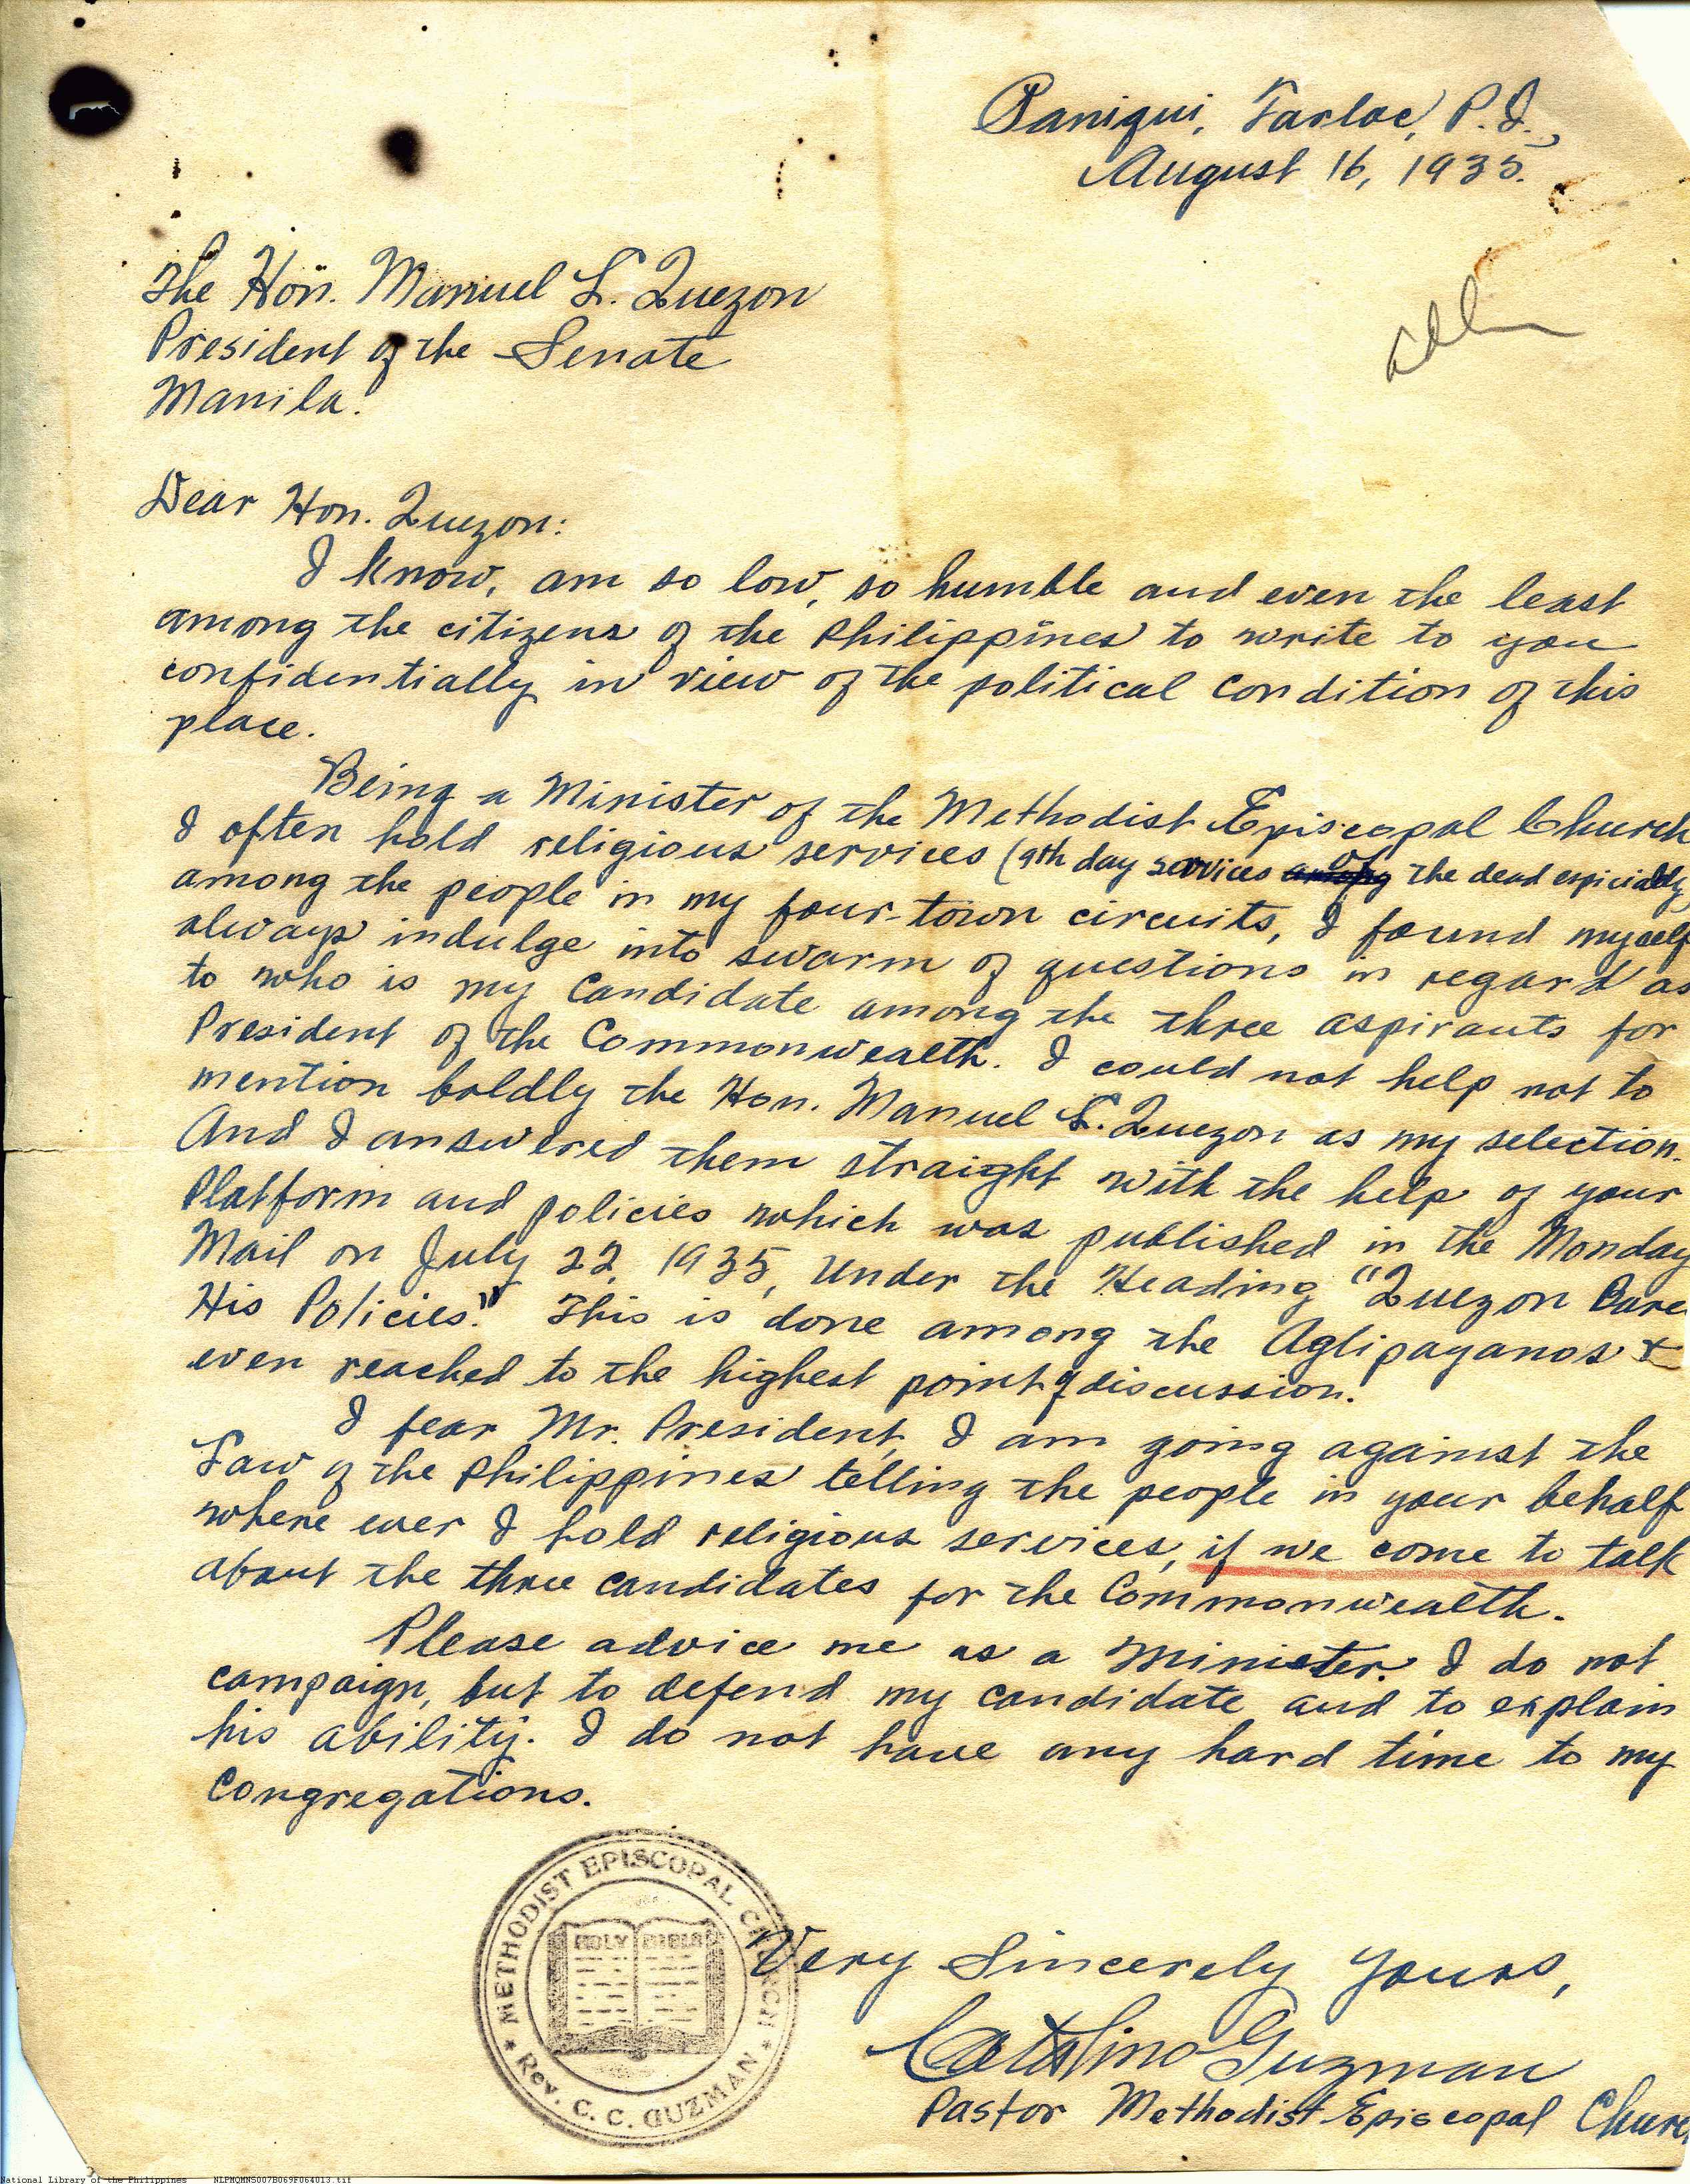 Paniqui, Tarlac, P.I.,
August 16, 1935.
The Hon. Manuel L. Quezon
President of the Senate
Manila.
Dear Hon. Quezon:
I know, am so low, so humble and even the least
among the citizens of the Philippines to write to you
confidentially in view of the political condition of this
place.
Being a Minister of the Methodist Episcopal Church
I often hold religious services (9th day services of the dead espicially)
among the people in my four-town circuits, I found myself
always indulge into swarm of questions in regard as
to who is my Candidate among the three aspirants for
President of the Commonwealth. I could not help not to
mention boldly the Hon. Manuel L. Quezon as my selection.
And I answered them straight with the help of your
Platform and policies which was published in the Monday
Mail on July 22, 1935, Under the Heading "Quezon Bare
His Policies." This is done among the Aglipayanos &
even reached to the highest point of discussion.
I fear Mr. President, I am going against the
Law of the Philippines telling the people in your behalf
where ever I hold religious services, if we come to talk
about the three candidates for the Commonwealth.
Please advice me as a Minister. I do not
campaign, but to defend my candidate and to explain
his ability. I do not have any hard time to my
Congregations.
METHODIST EPISCOPAL CHURCH
HOLY BIBLE
REV. C. C. GUZMAN
Very Sincerely Yours,
Catalino Guzman
Pastor Methodist Episcopal Churc
National Library of the Philippines NLPMQMNS007B069F064013.tif